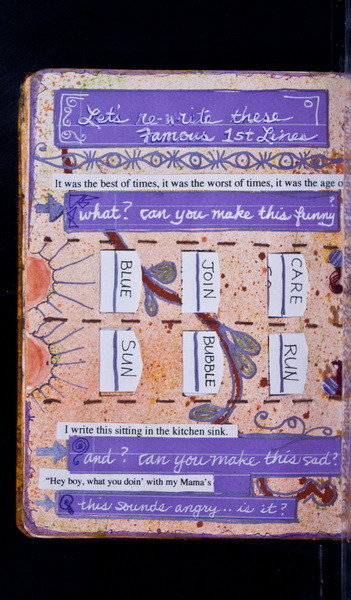 Let's re-write these
Famous 1st Lines
It was the best of times, it was the worst of times, it was the age o
what? can you make this funny?
BLUE
JOIN
CARE
SUN
BUBBLE
RUN
I write this sitting in the kitchen sink.
and? can you make this sad?
"Hey boy, what you doin' with my Mama's
this sounds angry.. is it?